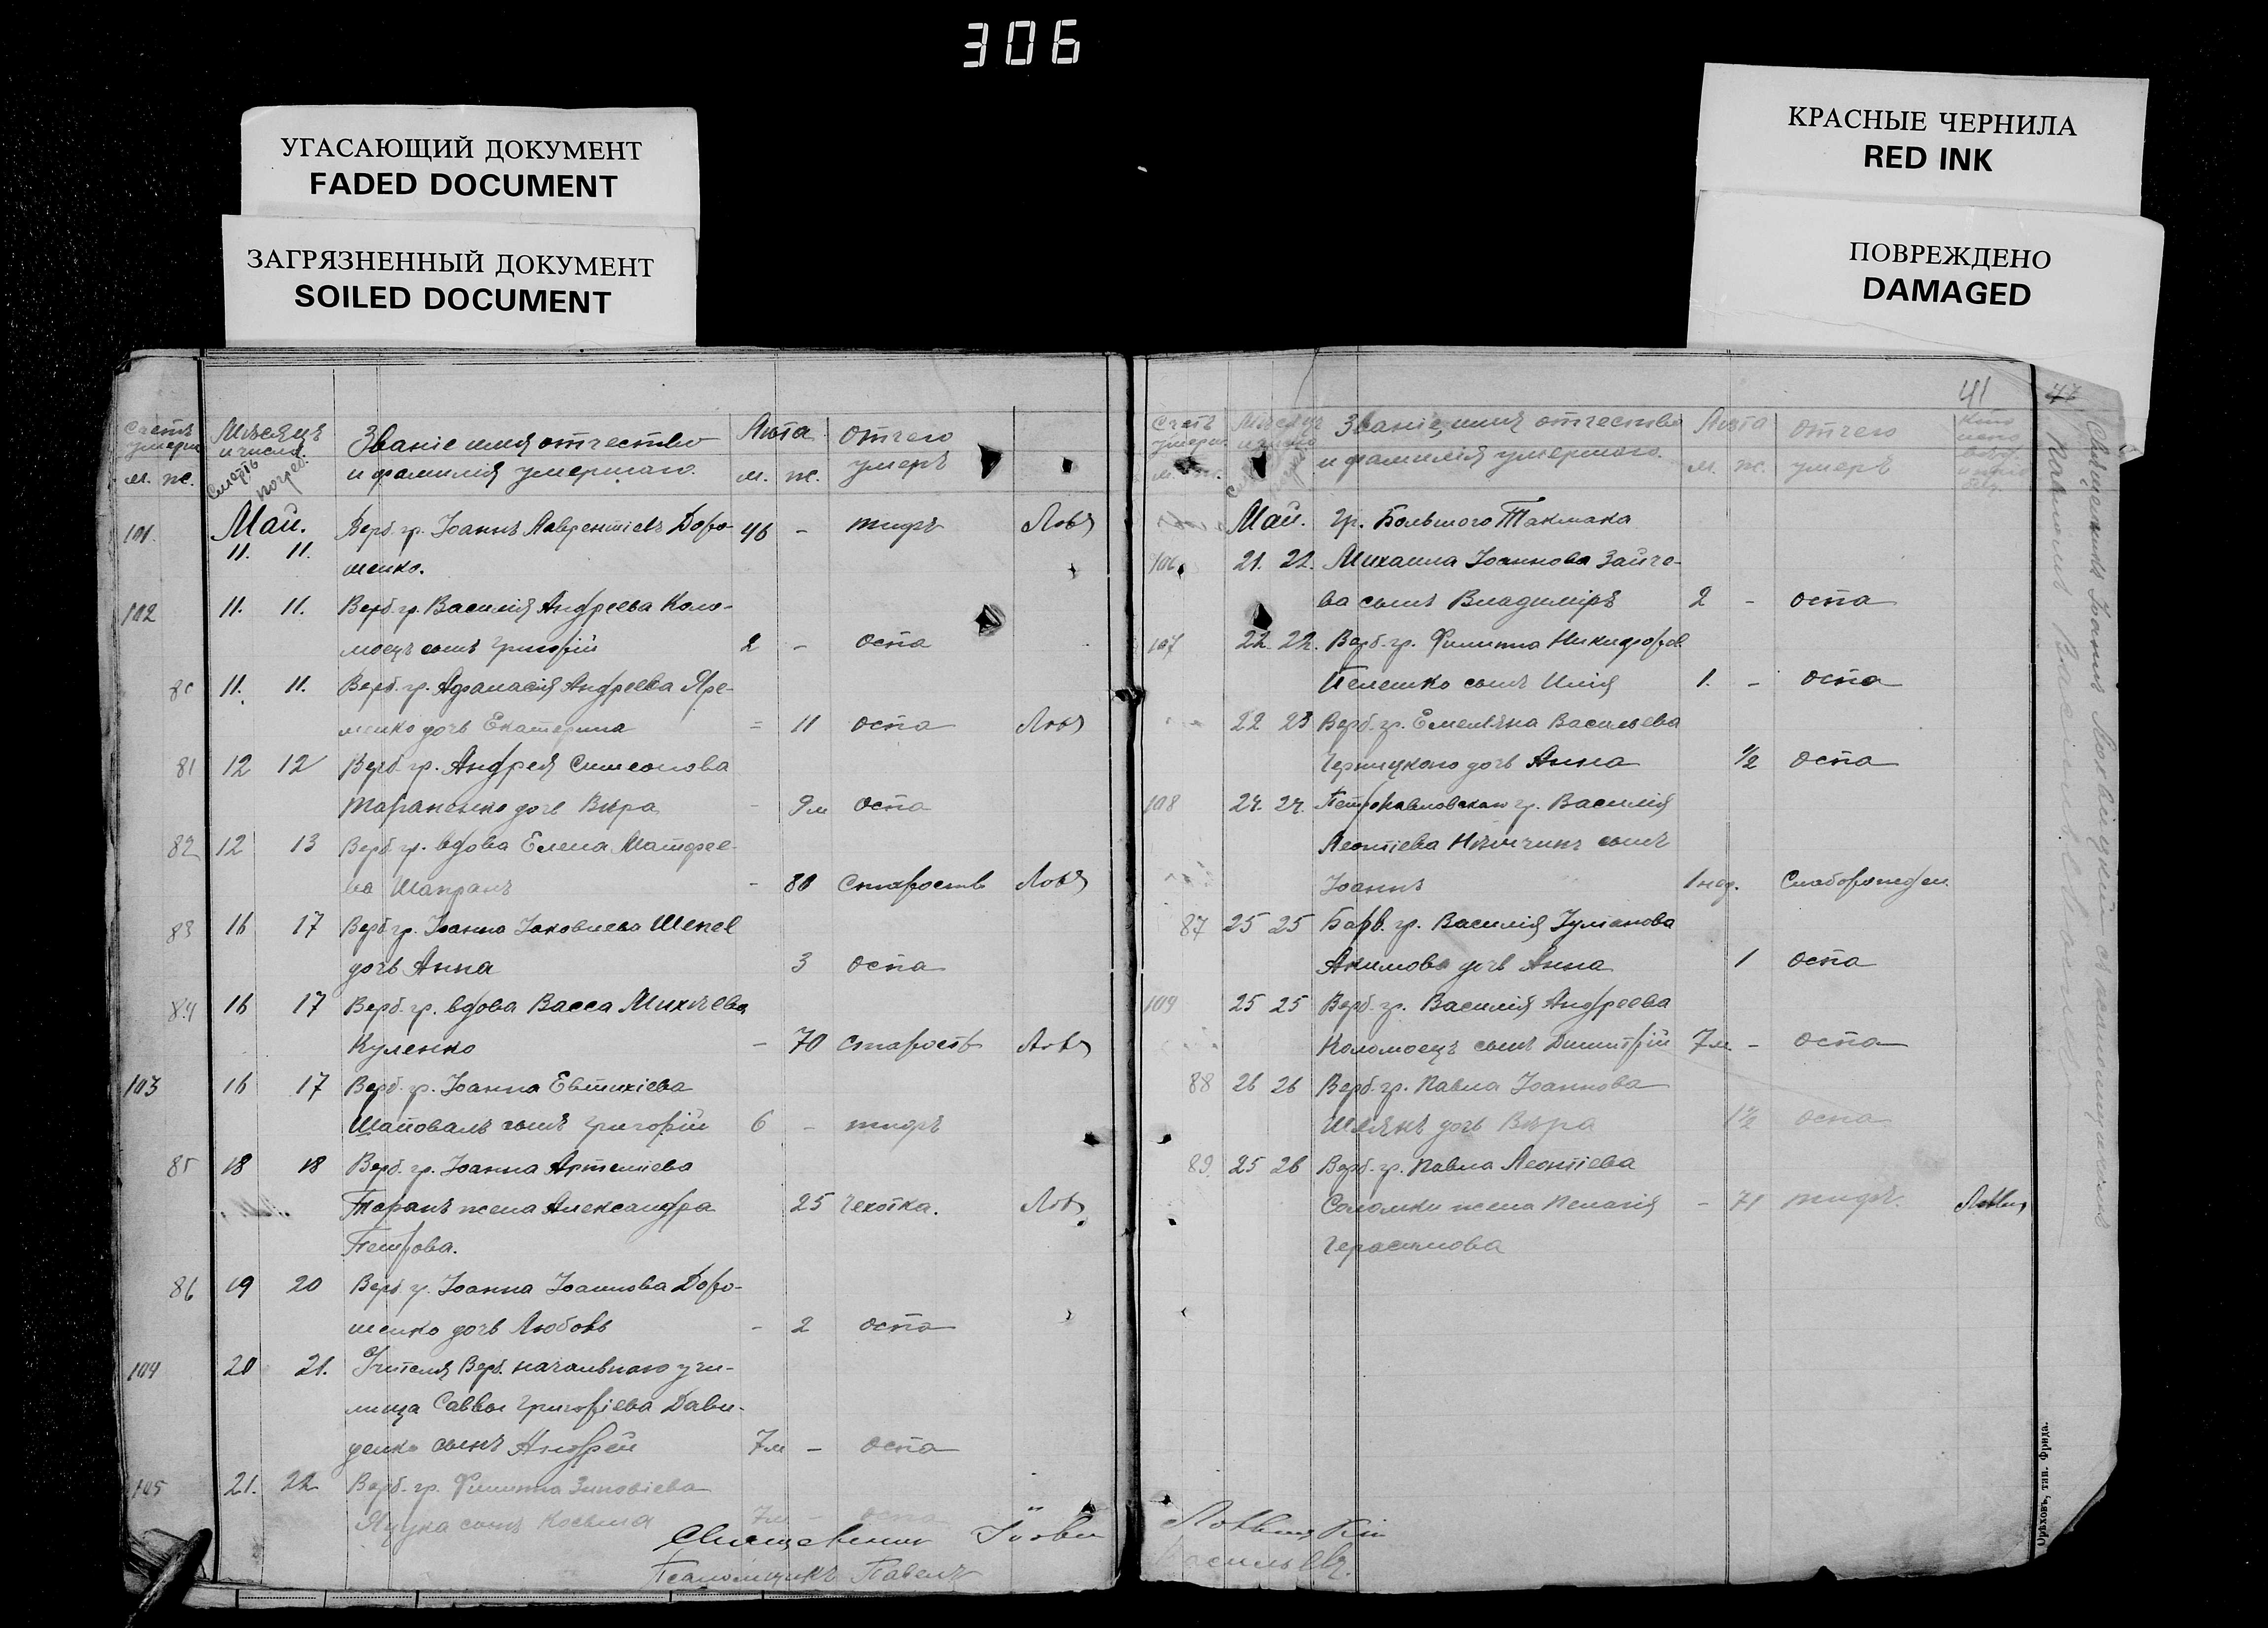 306
УГАСАЮЩИЙ ДОКУМЕНТ
FADED DOCUMENT
ЗАГРЯЗНЕННЫЙ ДОКУМЕНТ
SOILED DOCUMENT
КРАСНЫЕ ЧЕРНИЛА
RED INK
ПОВРЕЖДЕНО
DAMAGED
Счетъ умерш. Мѣсяцъ и число. Званіе имя отчество Лѣта Отчего
м. ж. Смерть погреб. и фамилія умершаго. м. ж. умеръ
101. Май. Верб. гр. Іоаннъ Лаврентіевъ Доро- 46 - тифъ Ловя
11. 11. шенко.
102 11. 11. Верб. гр. Василія Андреева Коло-
моецъ сынъ Григорій 2 - оспа
80 11. 11. Верб. гр. Афанасія Андреева Яре-
менко дочь Екатерина = 11 оспа Ловя
81 12 12 Верб. гр. Андрея Симеонова
Тараненко дочь Вѣра - 9м оспа
82 12 13 Верб. гр. вдова Елена Матфее-
ва Шапранъ - 80 Старость Ловя
83 16 17 Верб. гр. Іоанна Іаковлева Шепел
дочь Анна 3 оспа
84 16 17 Верб. гр. вдова Васса Михѣева
Куленко - 70 старость Ловя
103 16 17 Верб. гр. Іоанна Евтихіева
Шаповалъ сынъ Григорій 6 - тифъ
85 18 18 Верб. гр. Іоанна Артеміева
Таранъ жена Александра 25 чехотка. Лов
Петрова.
86 19 20 Верб. гр. Іоанна Іоаннова Доро-
шенко дочь Любовь - 2 оспа
104 20 21. Учителя Верб. начальнаго учи-
лища Саввы Григоріева Дави-
денко сынъ Андрей 7м - оспа
105 21. 22 Верб. гр. Филиппа Зиновіева
Яцука сынъ Косьма 7м - оспа
Священникъ
Псаломщикъ Павелъ
41
Счетъ умерш. Мѣсяцъ и число Званіе, имя отчество Лѣта Отчего
м. ж. и фамилія умершаго. м. ж. умеръ
Май. гр. Большого Такмака
106 21. 22. Михаила Іоаннова Зайче-
ва сынъ Владиміръ 2 - оспа
107 22. 22. Верб. гр. Филиппа Никифоров
Пелешко сынъ Илія 1. - оспа
22 23 Верб. гр. Емеліяна Васильева
Черницкого дочь Анна 1/2 оспа
108 24. 24. Петропавловскаго гр. Василія
Леонтіева Нѣмчинъ сынъ
Іоаннъ 1 нед. Слаборожден.
87 25 25 Барв. гр. Василія
Акимова дочь Анна 1 оспа
109 25 25 Верб. гр. Василія Андреева
Коломоецъ сынъ Димитрій 7м - оспа
88 26 26 Верб. гр. Павла Іоаннова
дочь Вѣра 1 1/2 оспа
89. 25 26 Верб. гр. Павла Леонтіева
Соломки жена Пелагія - 71 тифъ.
Герасимова
Орѣховъ, тип. Фрида.